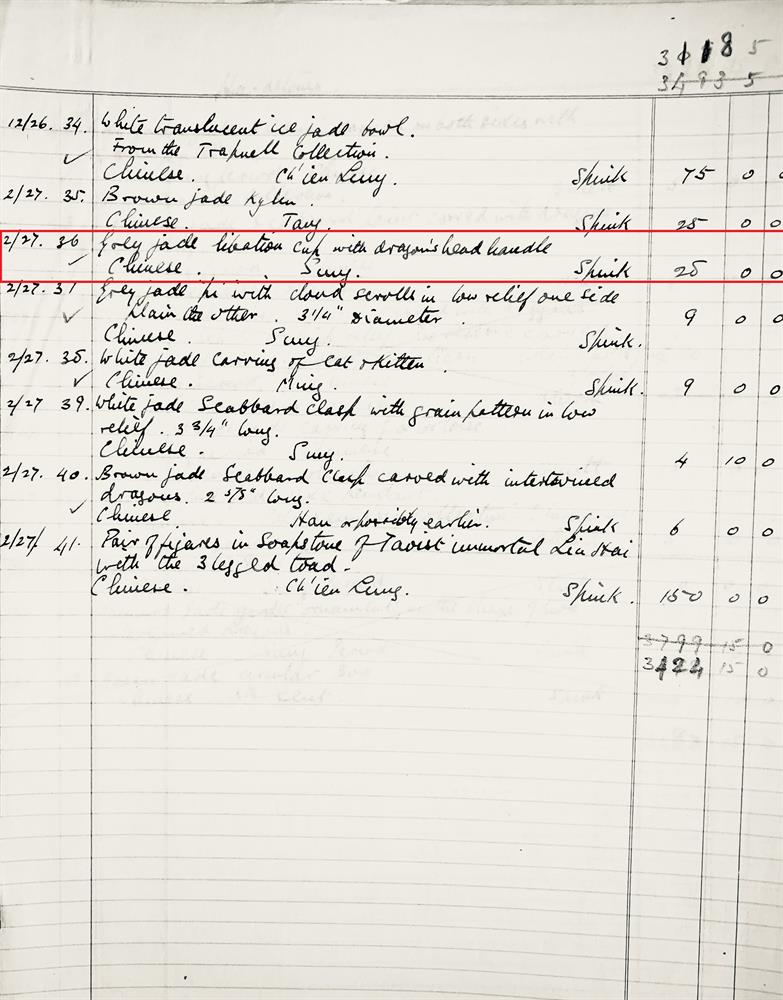 31185
3483 5
12/26. 34. White translucent ice jade bowl.
From the Trapnell Collection.
Chinese. Ch'ien Lung. Spink 75 0 0
2/27. 35. Brown jade Kylin.
Chinese. Tang. Spink 25 0 0
2/27. 36 Grey jade libation cup with dragon's head handle
Chinese. Sung. Spink 25 0 0
2/27. 37 Grey jade pi with cloud scrolls in low relief one side
Plain the other. 3 1/4" Diameter. 9 0 0
Chinese. Sung. Spink.
2/27. 38. White jade carving of Cat & Kitten.
Chinese. Ming. Spink. 9 0 0
2/27 39. White jade Scabbard Clasp with grain pattern in low
relief. 3 3/4" long.
Chinese. Sung. 4 10 0
2/27. 40. Brown jade Scabbard Clasp carved with intertwined
dragons. 2 5/8" long.
Chinese Han or possibly earlier. Spink 6 0 0
2/27/ 41. Pair of figures in Soapstone of Taoist immortal Liu Hai
with the 3 legged toad.
Chinese. Ch'ien Lung. Spink. 150 0 0
3799 15 0
3424 15 0